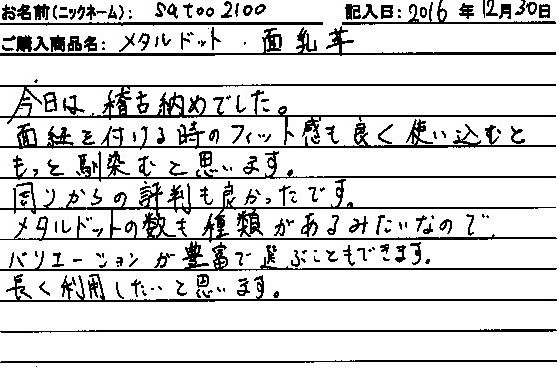 お名前(ニックネーム): satoo2100 記入日: 2016年12月30日
ご購入商品名: メタルドット・面乳革
今日は、稽古納めでした。
面紐を付ける時のフィット感も良く使い込むと
もっと馴染むと思います。
周りからの評判も良かったです。
メタルドットの数も種類があるみたいなので、
バリエーションが豊富で選ぶこともできます。
長く利用したいと思います。